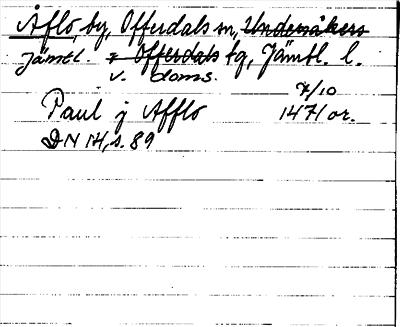 Åflo by, Offerdals sn, Undersåkers
Jämtl. & Offerdals tg, Jämtl. l.
v. doms.
7/10
Paul j Afflo 1471 or.
DN 14, s. 89